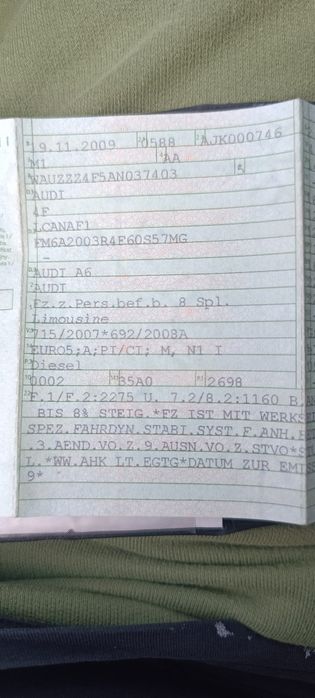 19.11.2009 0588 AJK000746
M1 AA
WAUZZZ4F5AN037403 5
AUDI
4F
LCANAF1
FM6A2003R4F60S57MG
-
AUDI A6
AUDI
Fz.z.Pers.bef.b. 8 Spl.
Limousine
715/2007*692/2008A
EURO5;A;PI/CI; M, N1 I
Diesel
0002 35A0 2698
F.1/F.2:2275 U. 7.2/8.2:1160 B.
BIS 8% STEIG.*FZ IST MIT WERKS
SPEZ.FAHRDYN.STABI.SYST.F.ANH.
.3.AEND.VO.Z.9.AUSN.VO.Z.STVO*
L.*WW.AHK LT.EGTG*DATUM ZUR EMI
9*